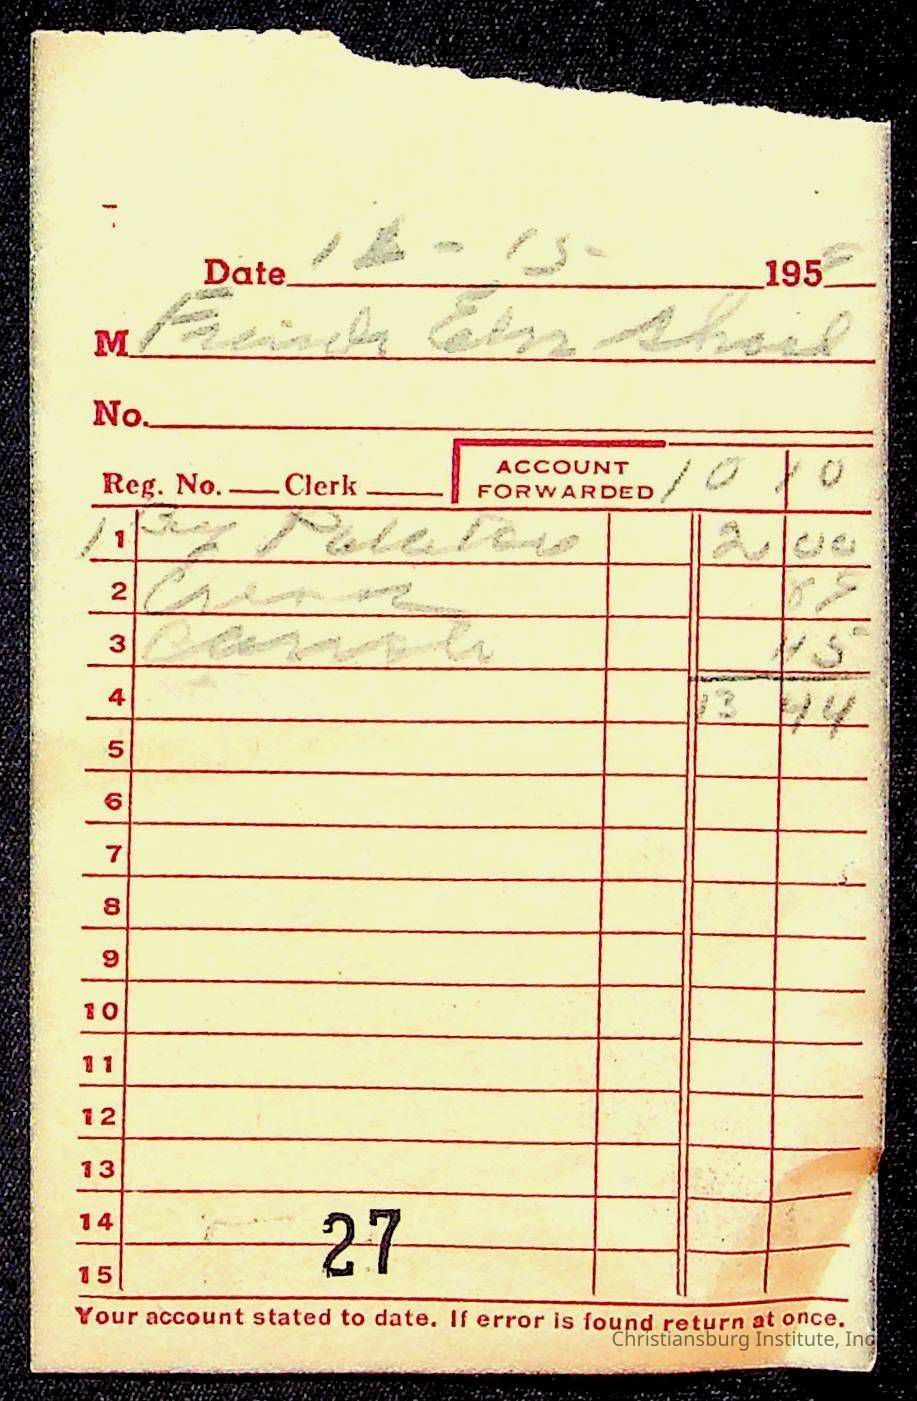 Date 12 - 15 - 195
M Friends Elm School
No.
Reg. No. Clerk ACCOUNT FORWARDED 10 10
1 1 Bg Potatoes 2 00
2 89
3 Carrots 45
4 13 44
5
6
7
8
9
10
11
12
13
14
27
15
Your account stated to date. If error is found return at once.
Christiansburg Institute, Inc